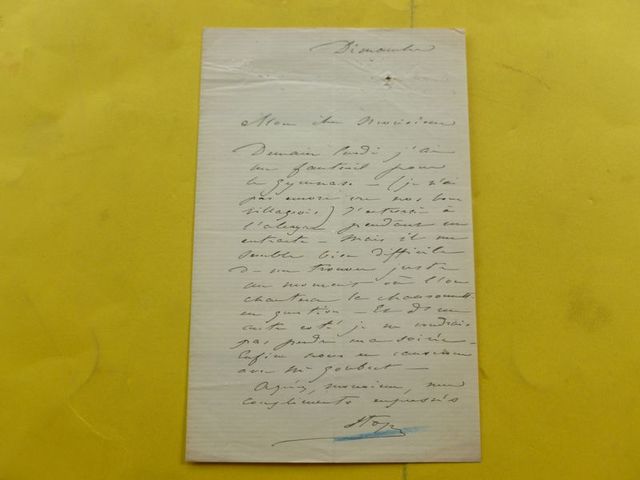 Dimanche
Mon cher Monsieur
Demain lundi j'ai
un fauteuil pour
le Gymnase - (je n'ai
pas encore vu nos bons
villageois) J'entrerai à
pendant un
entracte - Mais il me
semble bien difficile
de me trouver juste
au moment où l'on
chantera la chansonnette
en question - Et d'un
autre côté je ne voudrais
pas perdre ma soirée -
Enfin nous en causerons
avec Mr Goubert -
Agréez, monsieur, mes
compliments empressés
Stop